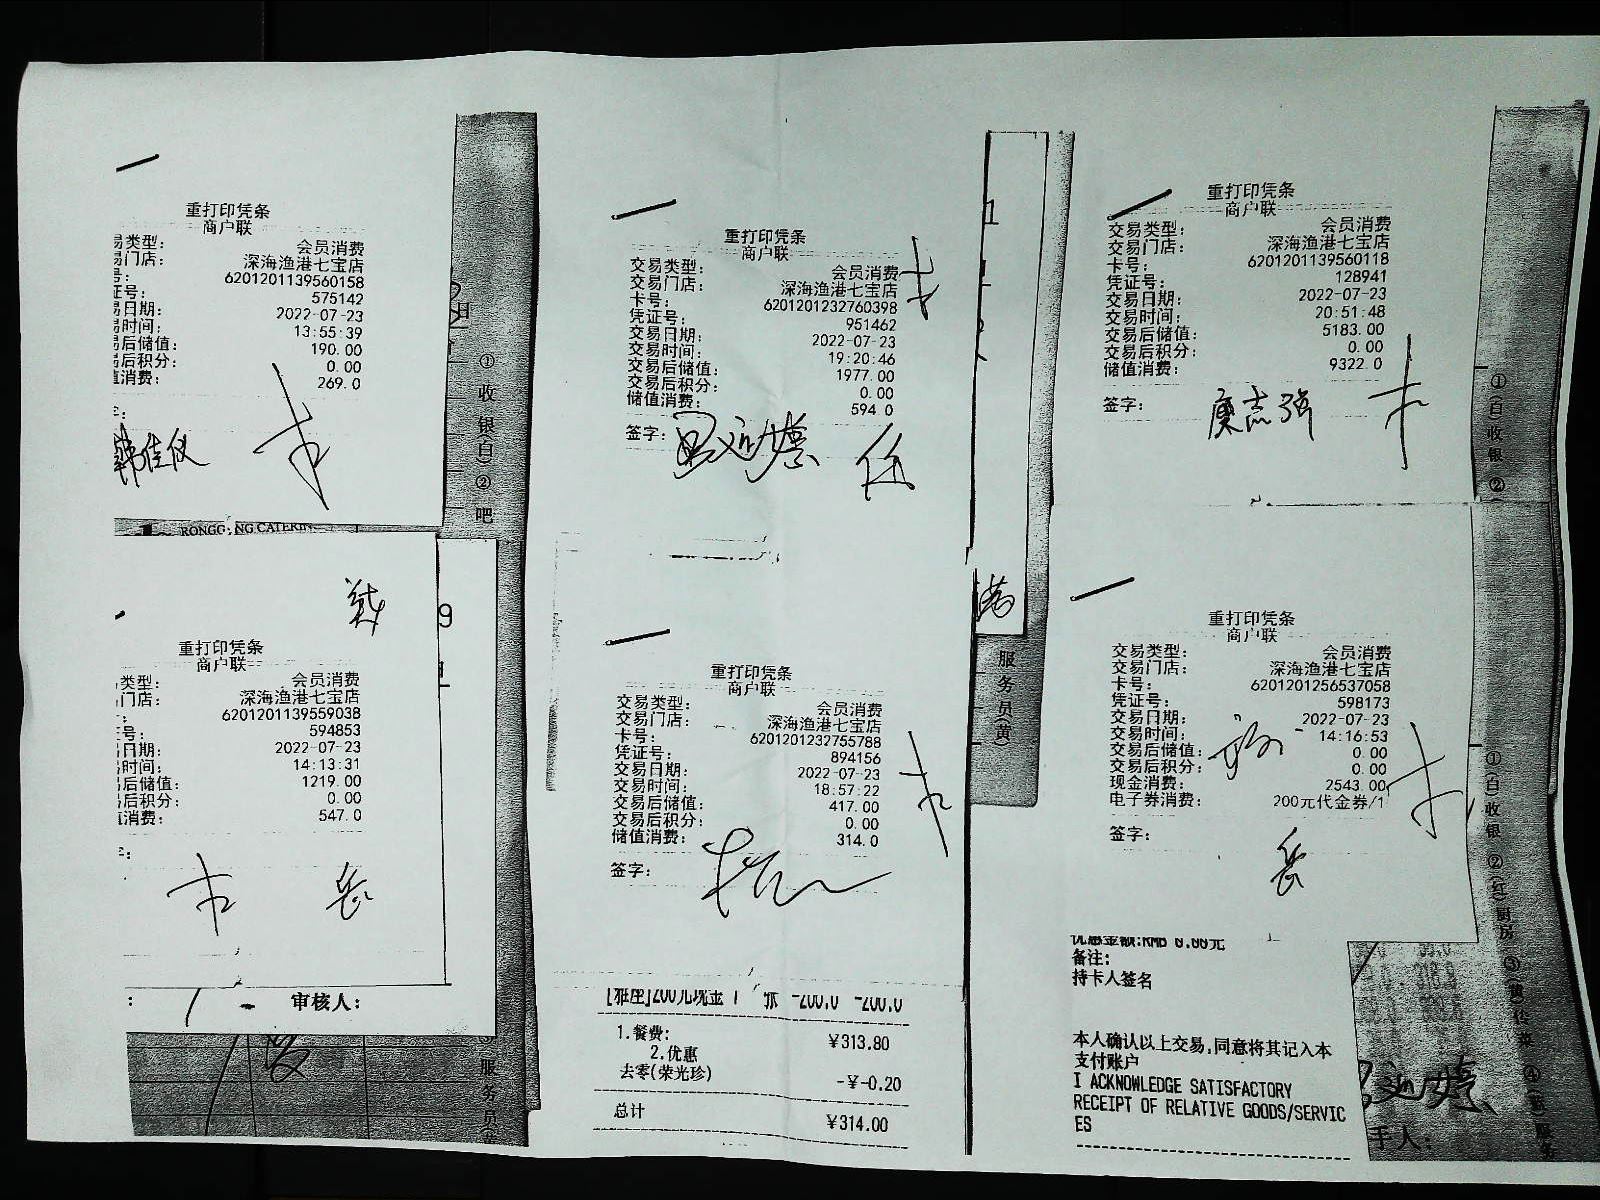 重打印凭条
商户联
易类型: 会员消费
易门店: 深海渔港七宝店
号: 6201201139560158
证号: 575142
易日期: 2022-07-23
易时间: 13:55:39
易后储值: 190.00
易后积分: 0.00
值消费: 269.0
字:
韩佳仪
RONGG NG CATERIN
①收银(白)②吧
重打印凭条
商户联
交易类型: 会员消费
交易门店: 深海渔港七宝店
卡号: 6201201232760398
凭证号: 951462
交易日期: 2022-07-23
交易时间: 19:20:46
交易后储值: 1977.00
交易后积分: 0.00
储值消费: 594.0
签字:
重打印凭条
商户联
交易类型: 会员消费
交易门店: 深海渔港七宝店
卡号: 6201201139560118
凭证号: 128941
交易日期: 2022-07-23
交易时间: 20:51:48
交易后储值: 5183.00
交易后积分: 0.00
储值消费: 9322.0
签字: 廖志强
①(白)收银②(
戴
9
重打印凭条
商户联
类型: 会员消费
门店: 深海渔港七宝店
: 6201201139559038
号: 594853
日期: 2022-07-23
时间: 14:13:31
后储值: 1219.00
后积分: 0.00
值消费: 547.0
字:
岳
审核人:
服务员(
重打印凭条
商户联
交易类型: 会员消费
交易门店: 深海渔港七宝店
卡号: 6201201232755788
凭证号: 894156
交易日期: 2022-07-23
交易时间: 18:57:22
交易后储值: 417.00
交易后积分: 0.00
储值消费: 314.0
签字:
[雅座]200元现金 张 -200.0 -200.0
1.餐费: ¥313.80
2.优惠
去零(荣光珍) -¥-0.20
总计 ¥314.00
服务员(黄)
重打印凭条
商户联
交易类型: 会员消费
交易门店: 深海渔港七宝店
卡号: 6201201256537058
凭证号: 598173
交易日期: 2022-07-23
交易时间: 14:16:53
交易后储值: 0.00
交易后积分: 0.00
现金消费: 2543.00
电子券消费: 200元代金券/1
签字:
岳
优惠金额:RMB 0.00元
备注:
持卡人签名
本人确认以上交易,同意将其记入本
支付账户
I ACKNOWLEDGE SATISFACTORY
RECEIPT OF RELATIVE GOODS/SERVIC
ES
①(白)收银 ②(红)厨房 ③(黄)传菜 ④
手人: